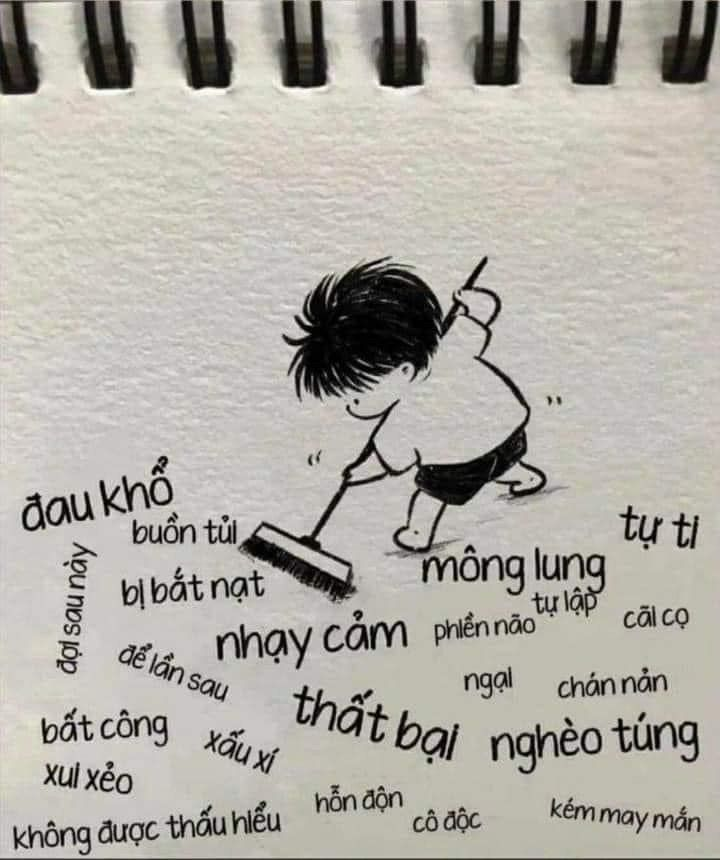 đau khổ
buồn tủi
tự ti
đợi sau này
bị bắt nạt
mông lung
tự lập
nhạy cảm
phiền não
cãi cọ
để lần sau
ngại
chán nản
thất bại
bất công
xấu xí
nghèo túng
xui xẻo
hỗn độn
không được thấu hiểu
cô độc
kém may mắn